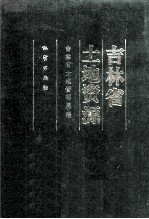 吉林省
土地資源
吉林省土地管理局编